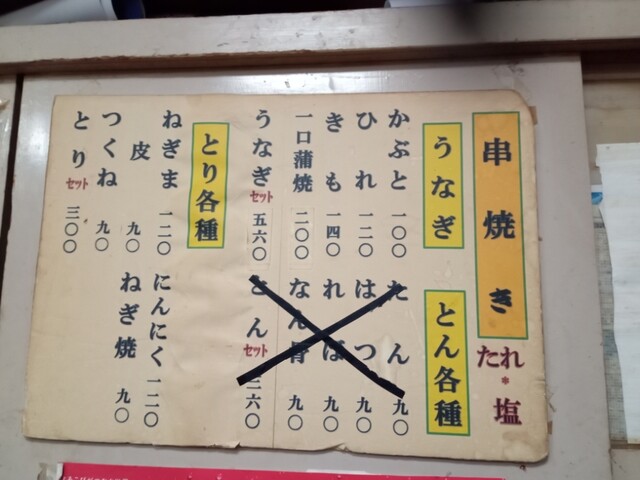 串焼き
たれ*塩
うなぎ
かぶと 一〇〇
ひれ 一二〇
きも 一四〇
一口蒲焼 二〇〇
うなぎセット 五六〇
とん各種
たん 九〇
はつ 九〇
ればー 九〇
なん骨 九〇
とんセット 三六〇
とり各種
ねぎま 一二〇
皮 九〇
つくね 九〇
とりセット 三〇〇
にんにく 一二〇
ねぎ焼 九〇